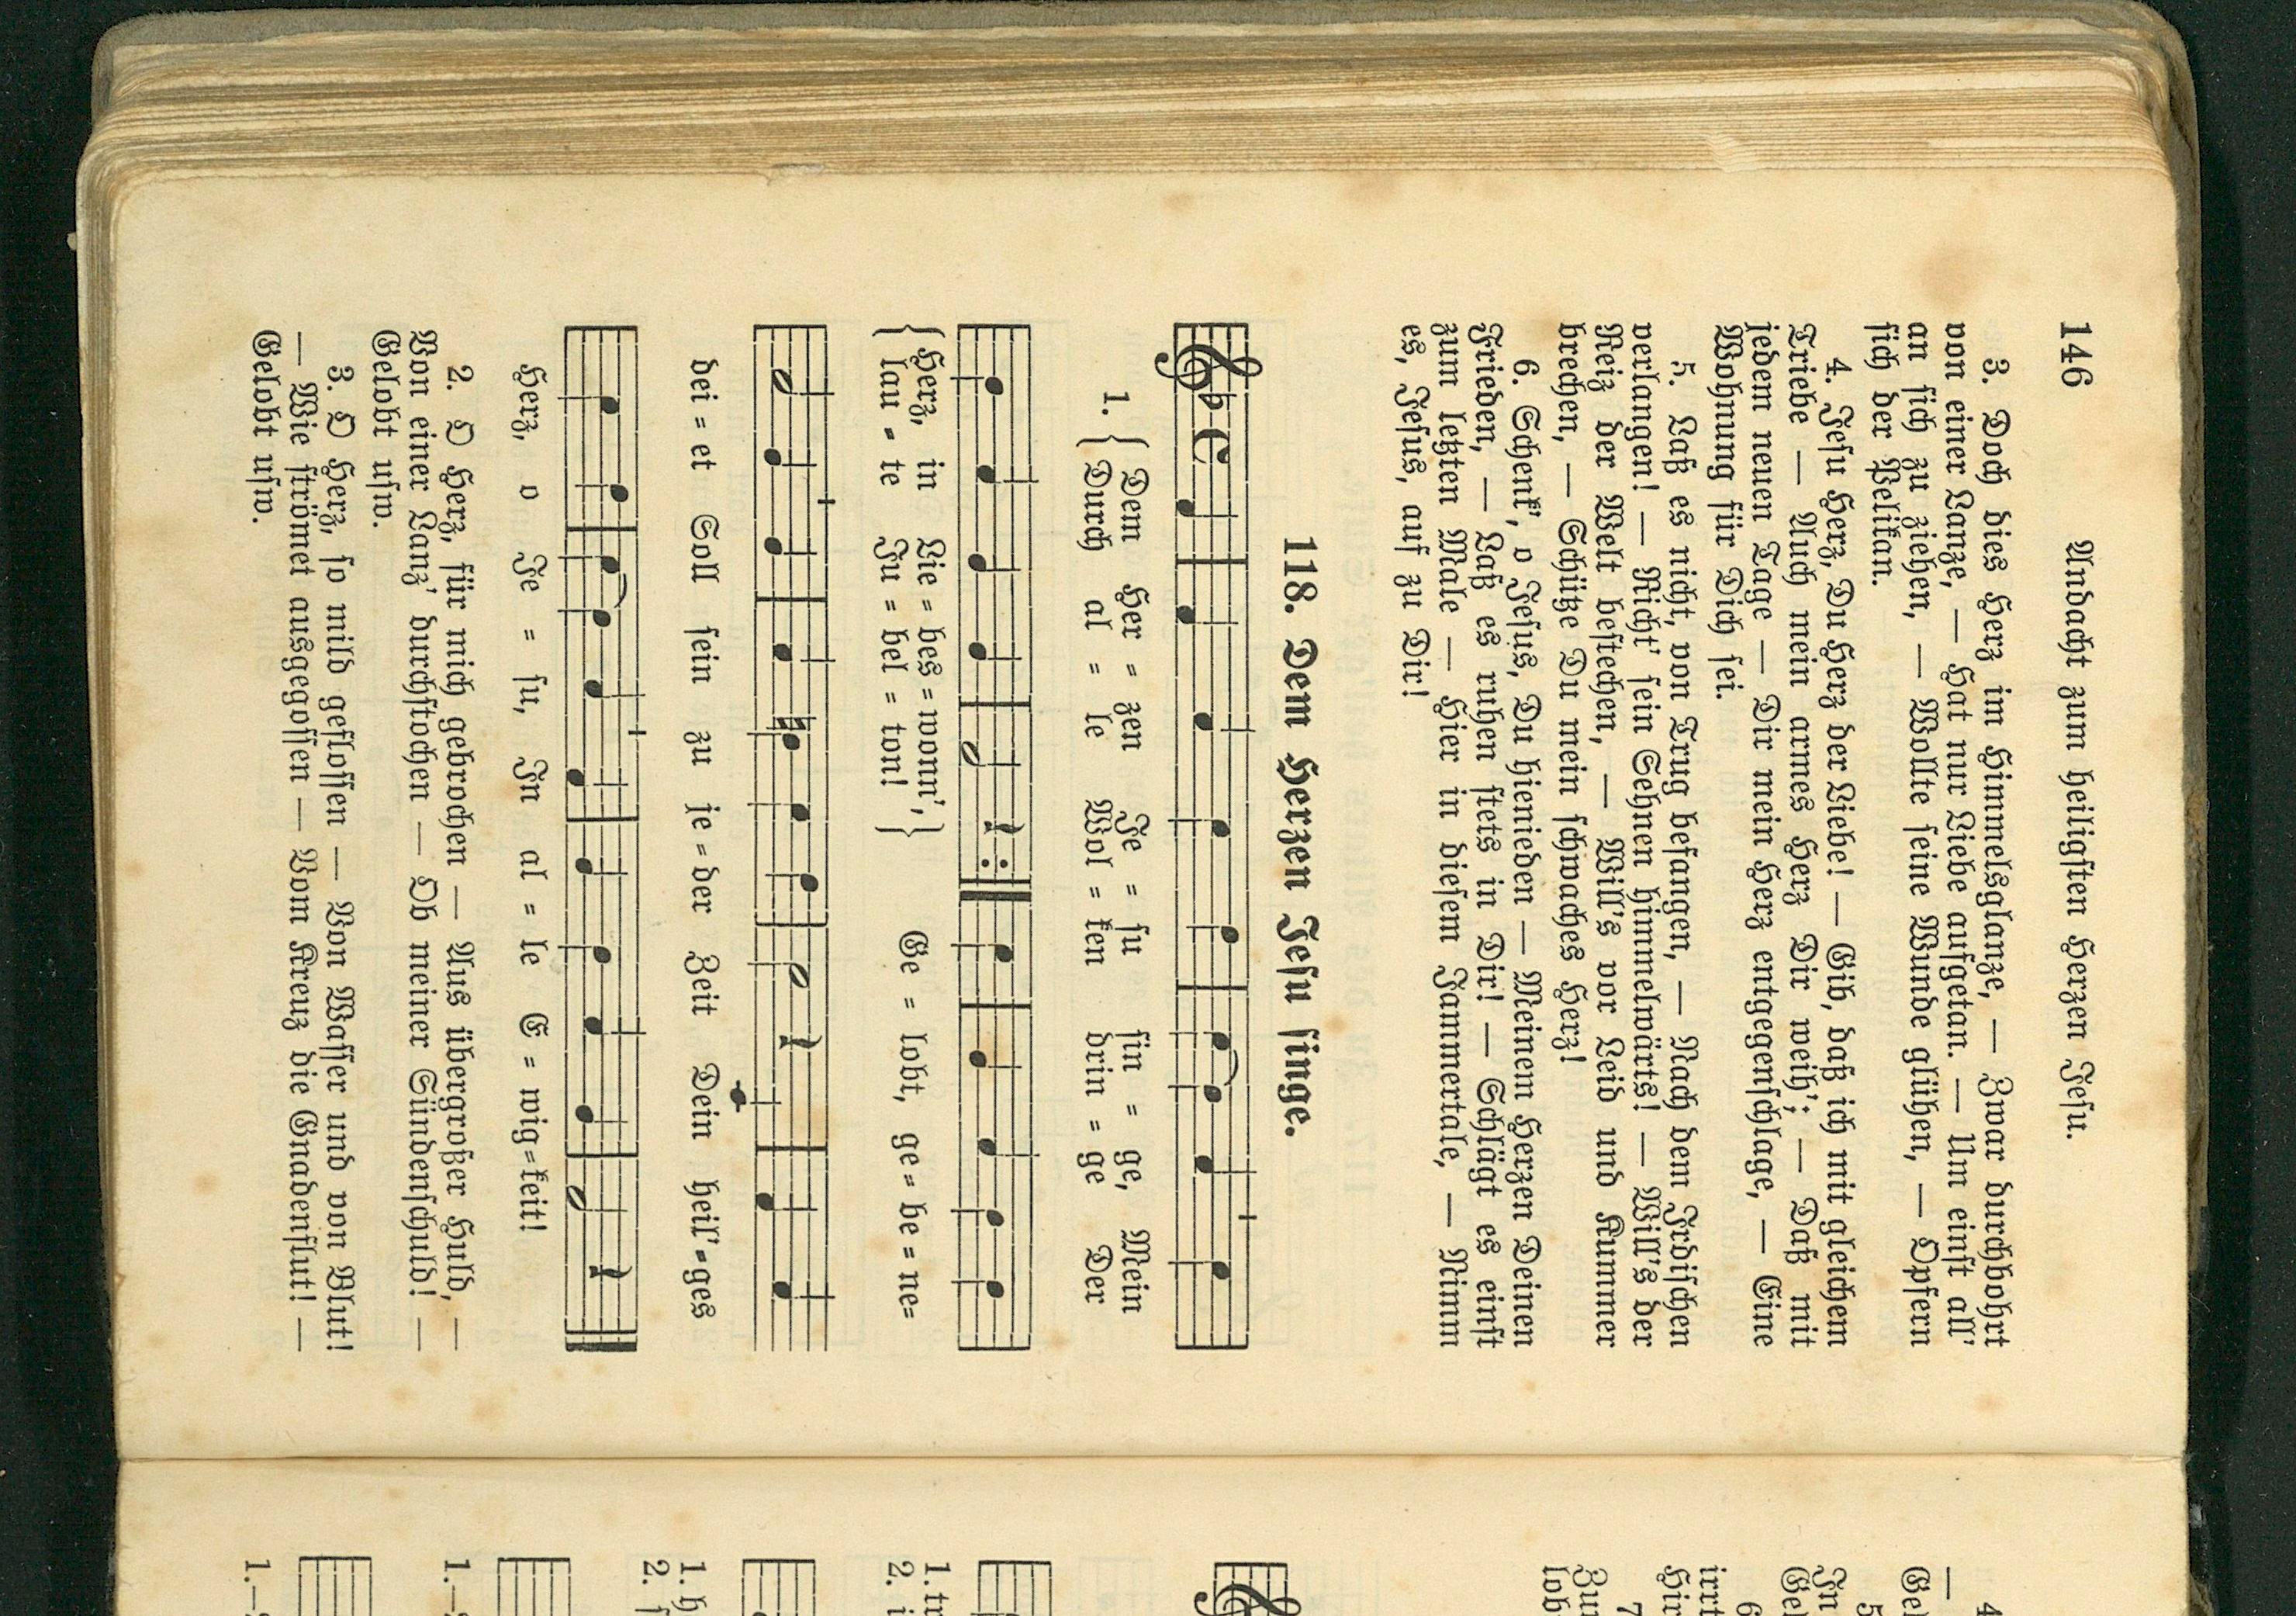 146 Andacht zum heiligsten Herzen Jesu.
3. Doch dies Herz im Himmelsglanze, — Zwar durchbohrt
von einer Lanze, — Hat nur Liebe aufgetan. — Um einst all'
an sich zu ziehen, — Wollte seine Wunde glühen, — Opfern
sich der Pelikan.
4. Jesu Herz, Du Herz der Liebe! — Gib, daß ich mit gleichem
Triebe — Auch mein armes Herz Dir weih'; — Daß mit
jedem neuen Tage — Dir mein Herz entgegenschlage, — Eine
Wohnung für Dich sei.
5. Laß es nicht, von Trug befangen, — Nach dem Irdischen
verlangen! — Richt' sein Sehnen himmelwärts! — Will's der
Reiz der Welt bestechen, — Will's vor Leid und Kummer
brechen, — Schütze Du mein schwaches Herz!
6. Schenk', o Jesus, Du hienieden — Meinem Herzen Deinen
Frieden, — Laß es ruhen stets in Dir! — Schlägt es einst
zum letzten Male — Hier in diesem Jammertale, — Nimm
es, Jesus, auf zu Dir!
118. Dem Herzen Jesu singe.
1. { Dem Her = zen Je = su sin = ge, Mein
Durch al = le Wol = ken drin = ge Der
{ Herz, in Lie = bes = wonn', }
{ lau = te Ju = bel = ton! } Ge = lobt, ge = be = ne=
dei = et Soll sein zu je = der Zeit Dein heil'=ges
Herz, o Je = su, In al = le E = wig=keit!
2. O Herz, für mich gebrochen — Aus übergroßer Huld, —
Von einer Lanz' durchstochen — Ob meiner Sündenschuld! —
Gelobt usw.
3. O Herz, so mild geflossen — Von Wasser und von Blut!
— Wie strömet ausgegossen — Vom Kreuz die Gnadenflut! —
Gelobt usw.
4
—
Gel
5
In
Gel
6
irrt
Hir
7
Zun
lob
1. tr
2. i
1. h
2. f
1.—
1.—